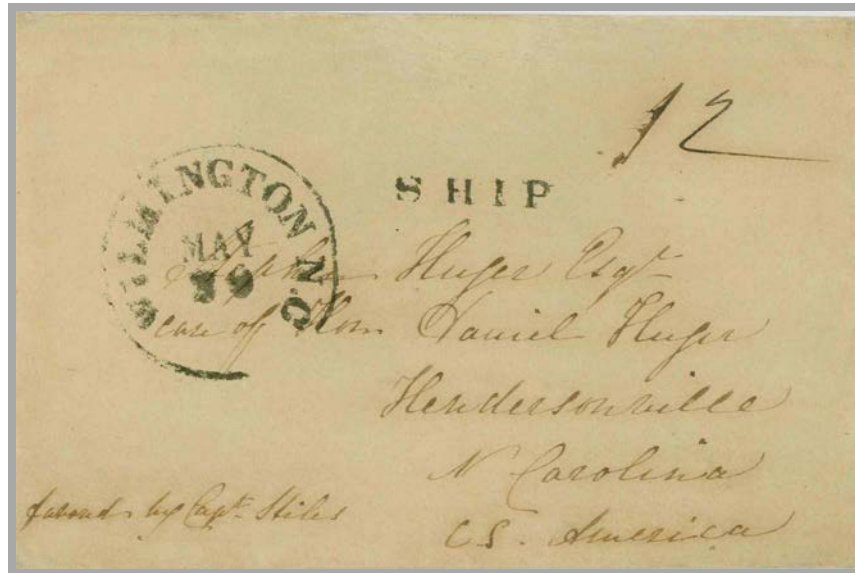 12
SHIP
WILMINGTON N.C.
MAY
Stephen Huger Esqr
care of Hon. Daniel Huger
Hendersonville
N Carolina
C.S. America
favored by Capt. Stiles